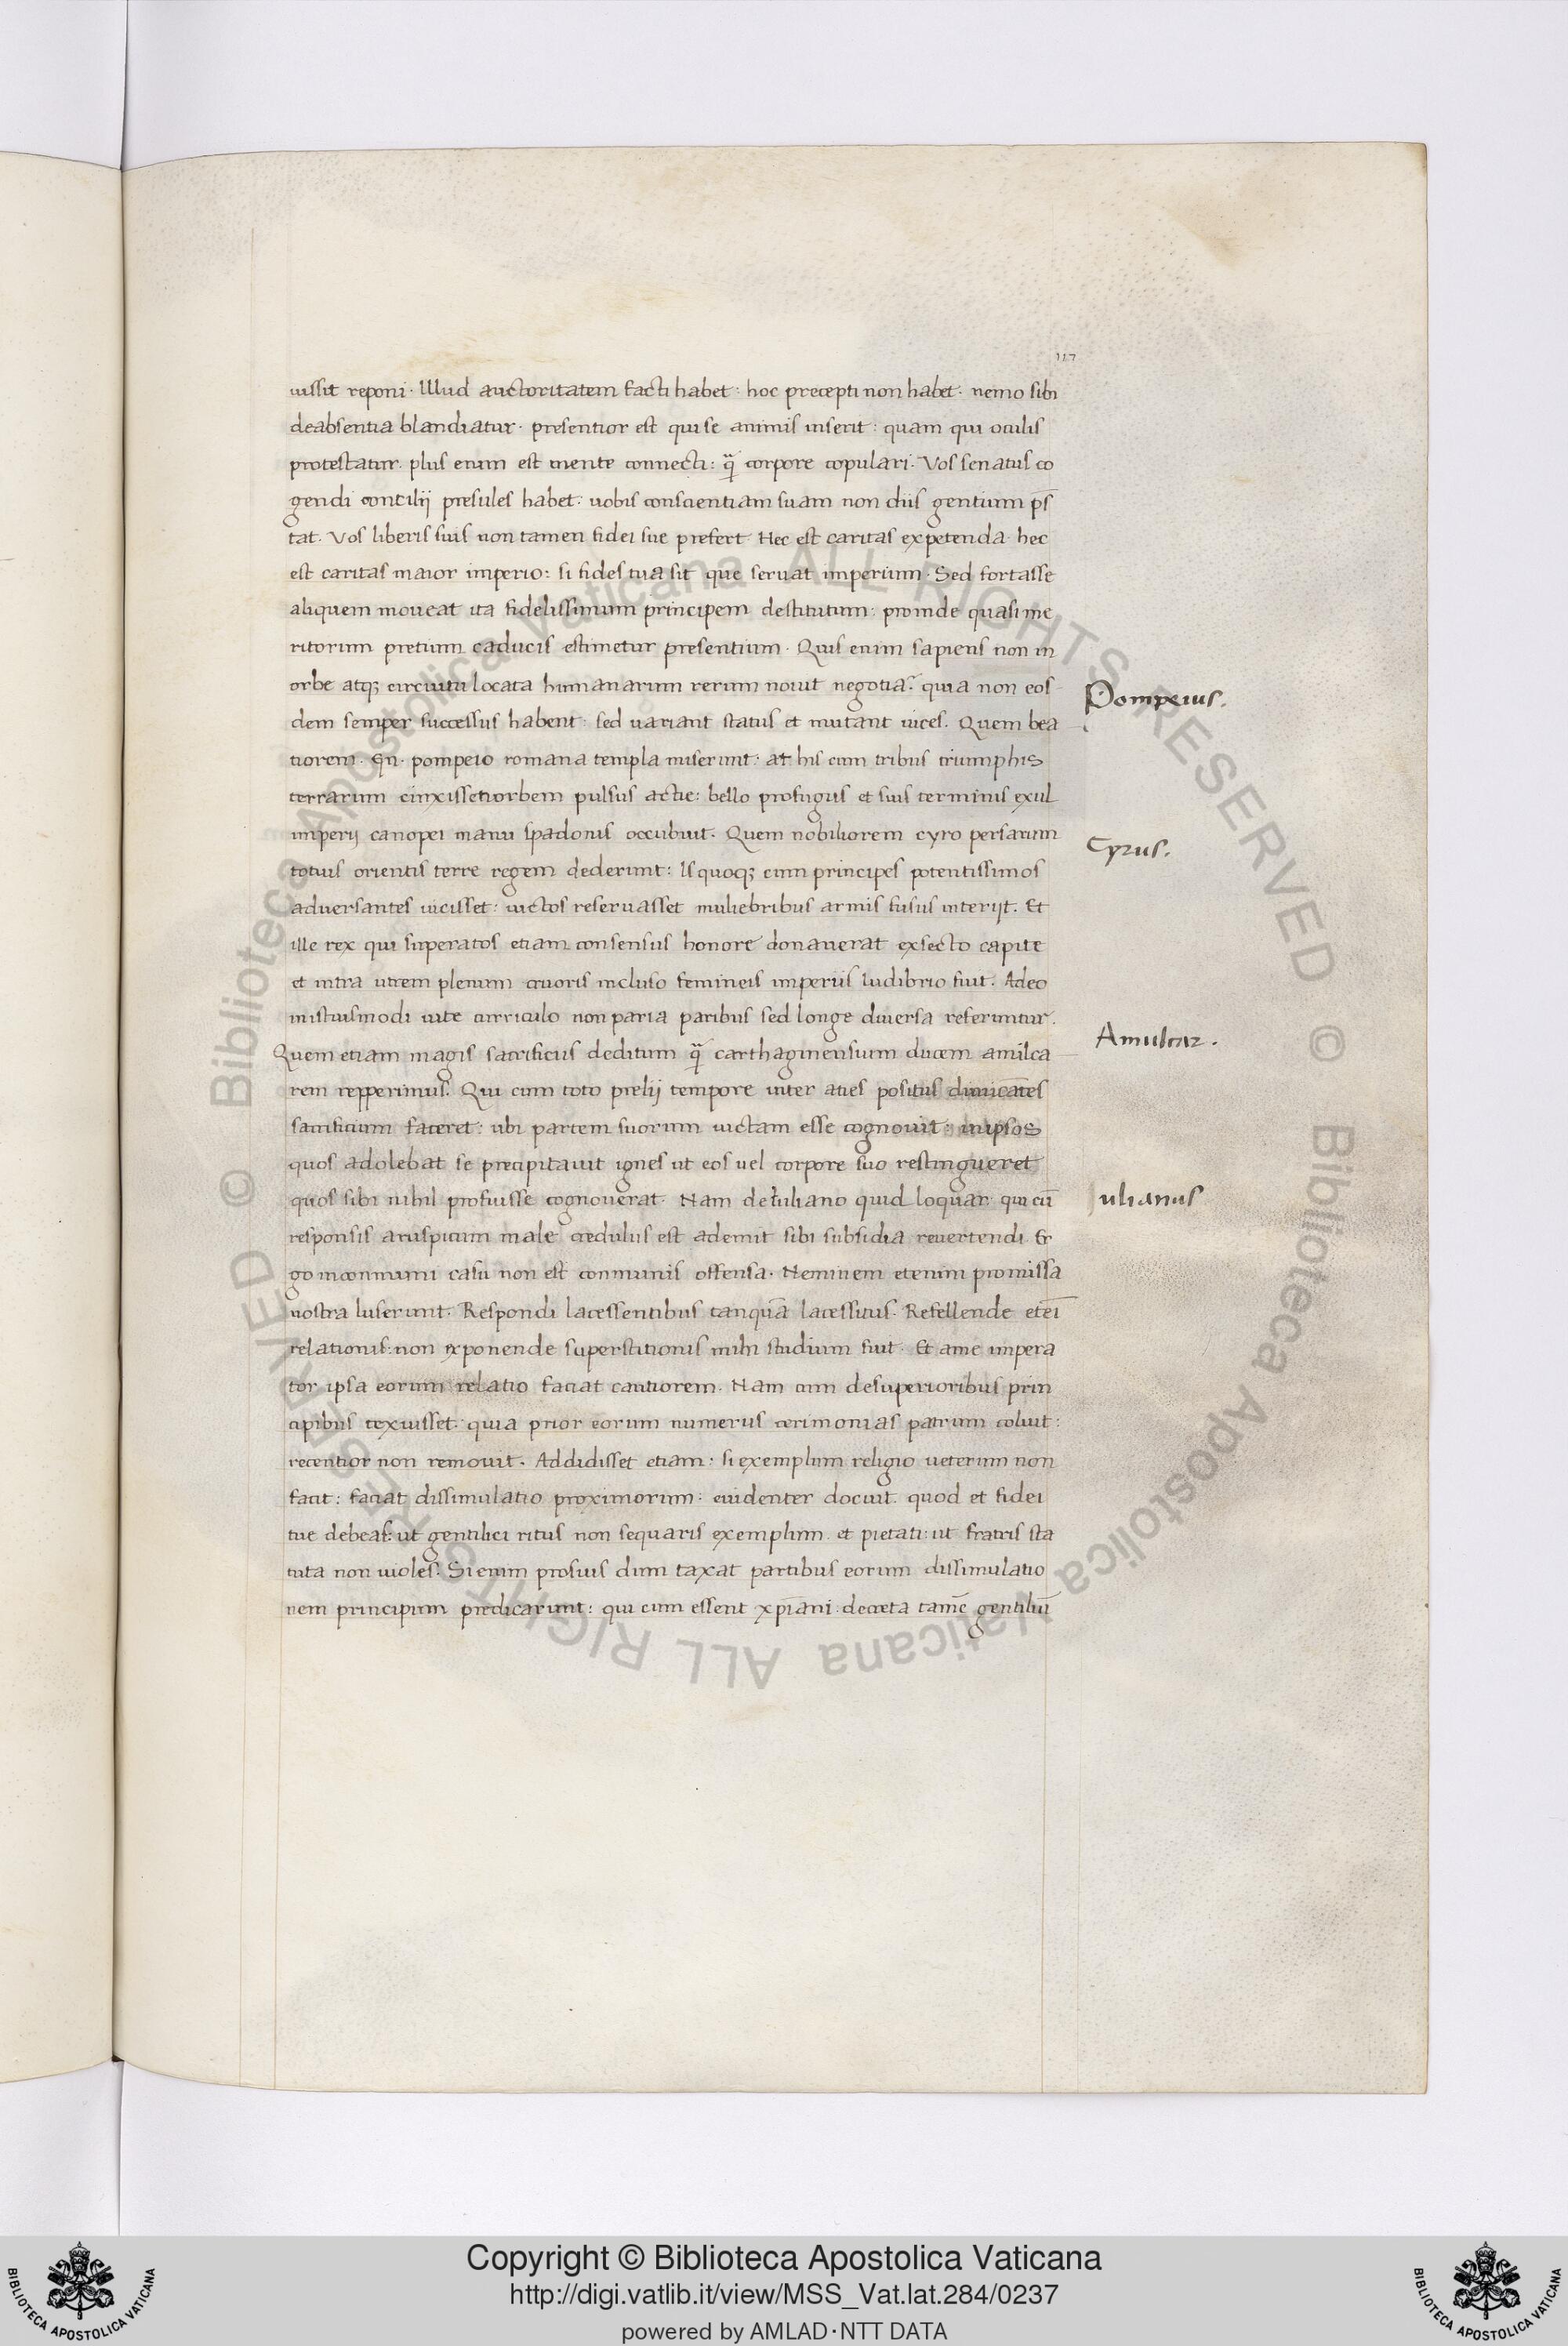 117
uissit reponi. Illud auctoritatem facti habet: hoc precepti non habet. nemo sibi
deabsentia blandiatur. presentior est qui se animis inserit: quam qui oculis
protestatur. plus enim est mente connecti: q̃ corpore copulari. Vos senatus co
gendi concilij presules habet: uobis conscientiam suam non diis gentium p̄s
tat. Vos liberis suis non tamen fidei sue prefert. Hec est caritas expetenda. hec
est caritas maior imperio: si fides tua sit que seruat imperium. Sed fortasse
aliquem moueat ita fidelissimum principem destitutum: proinde quasi me
ritorum pretium caducis estimetur presentium. Quis enim sapiens non in
orbe atq; circuitu locata humanarum rerum nouit negotia? quia non eos
dem semper successus habent: sed uariant status et mutant uices. Quem bea
Pompeius.
tiorem. Gn. pompeio romana templa miserunt: at his cum tribus triumphis
terrarum cinxisset orbem pulsus actie: bello profugus et suis terminis exul
imperij canopei manu spadonis occubuit. Quem nobiliorem cyro persarum
Cyrus.
totius orientis terre regem dederunt: Is quoq; cum principes potentissimos
aduersantes uicisset: uictos reseruasset muliebribus armis fusus interijt. Et
ille rex qui superatos etiam consensus honore donauerat exsecto capite
et intra utrem plenum cruoris incluso femineis imperiis ludibrio fuit. Adeo
inistiusmodi uite curriculo non paria paribus sed longe diuersa referuntur.
Quem etiam magis sacrificiis deditum q̃ carthaginensium ducem amilca
Amulcar.
rem repperimus. Qui cum toto prelij tempore inter aties positus dimicātes
sacrificium faceret: ubi partem suorum uictam esse cognouit: inipsos
quos adolebat se precipitauit ignes ut eos uel corpore suo restingueret
quos sibi nihil profuisse cognouerat. Nam de Iuliano quid loquar: qui cū
Iulianus
responsis aruspicum male credulus est ademit sibi subsidia reuertendi. Er
go inconmuni casu non est conmunis offensa. Neminem etenim promissa
nostra luserunt. Respondi lacessentibus tanquā lacessitus. Refellende eteī
relationis: non exponende superstitionis mihi studium fuit. Et ame impera
tor ipsa eorum relatio faciat cautiorem. Nam cum desuperioribus prin
cipibus texuisset: quia prior eorum numerus cerimonias patrum coluit:
recentior non remouit. Addidisset etiam: si exemplum religio ueterum non
facit: faciat dissimulatio proximorum: euidenter docuit. quod et fidei
tue debeas: ut gentilici ritus non sequaris exemplum. et pietati: ut fratris sta
tuta non uioles. Si enim prosuis dum taxat partibus eorum dissimulatio
nem principum predicarunt: qui cum essent xp̄iani. decreta tamē gentiliū
© Biblioteca Apostolica Vaticana ALL RIGHTS RESERVED © Biblioteca Apostolica Vaticana ALL RIGHTS RESERVED
Copyright © Biblioteca Apostolica Vaticana
http://digi.vatlib.it/view/MSS_Vat.lat.284/0237
powered by AMLAD·NTT DATA
BIBLIOTECA APOSTOLICA VATICANA
BIBLIOTECA APOSTOLICA VATICANA